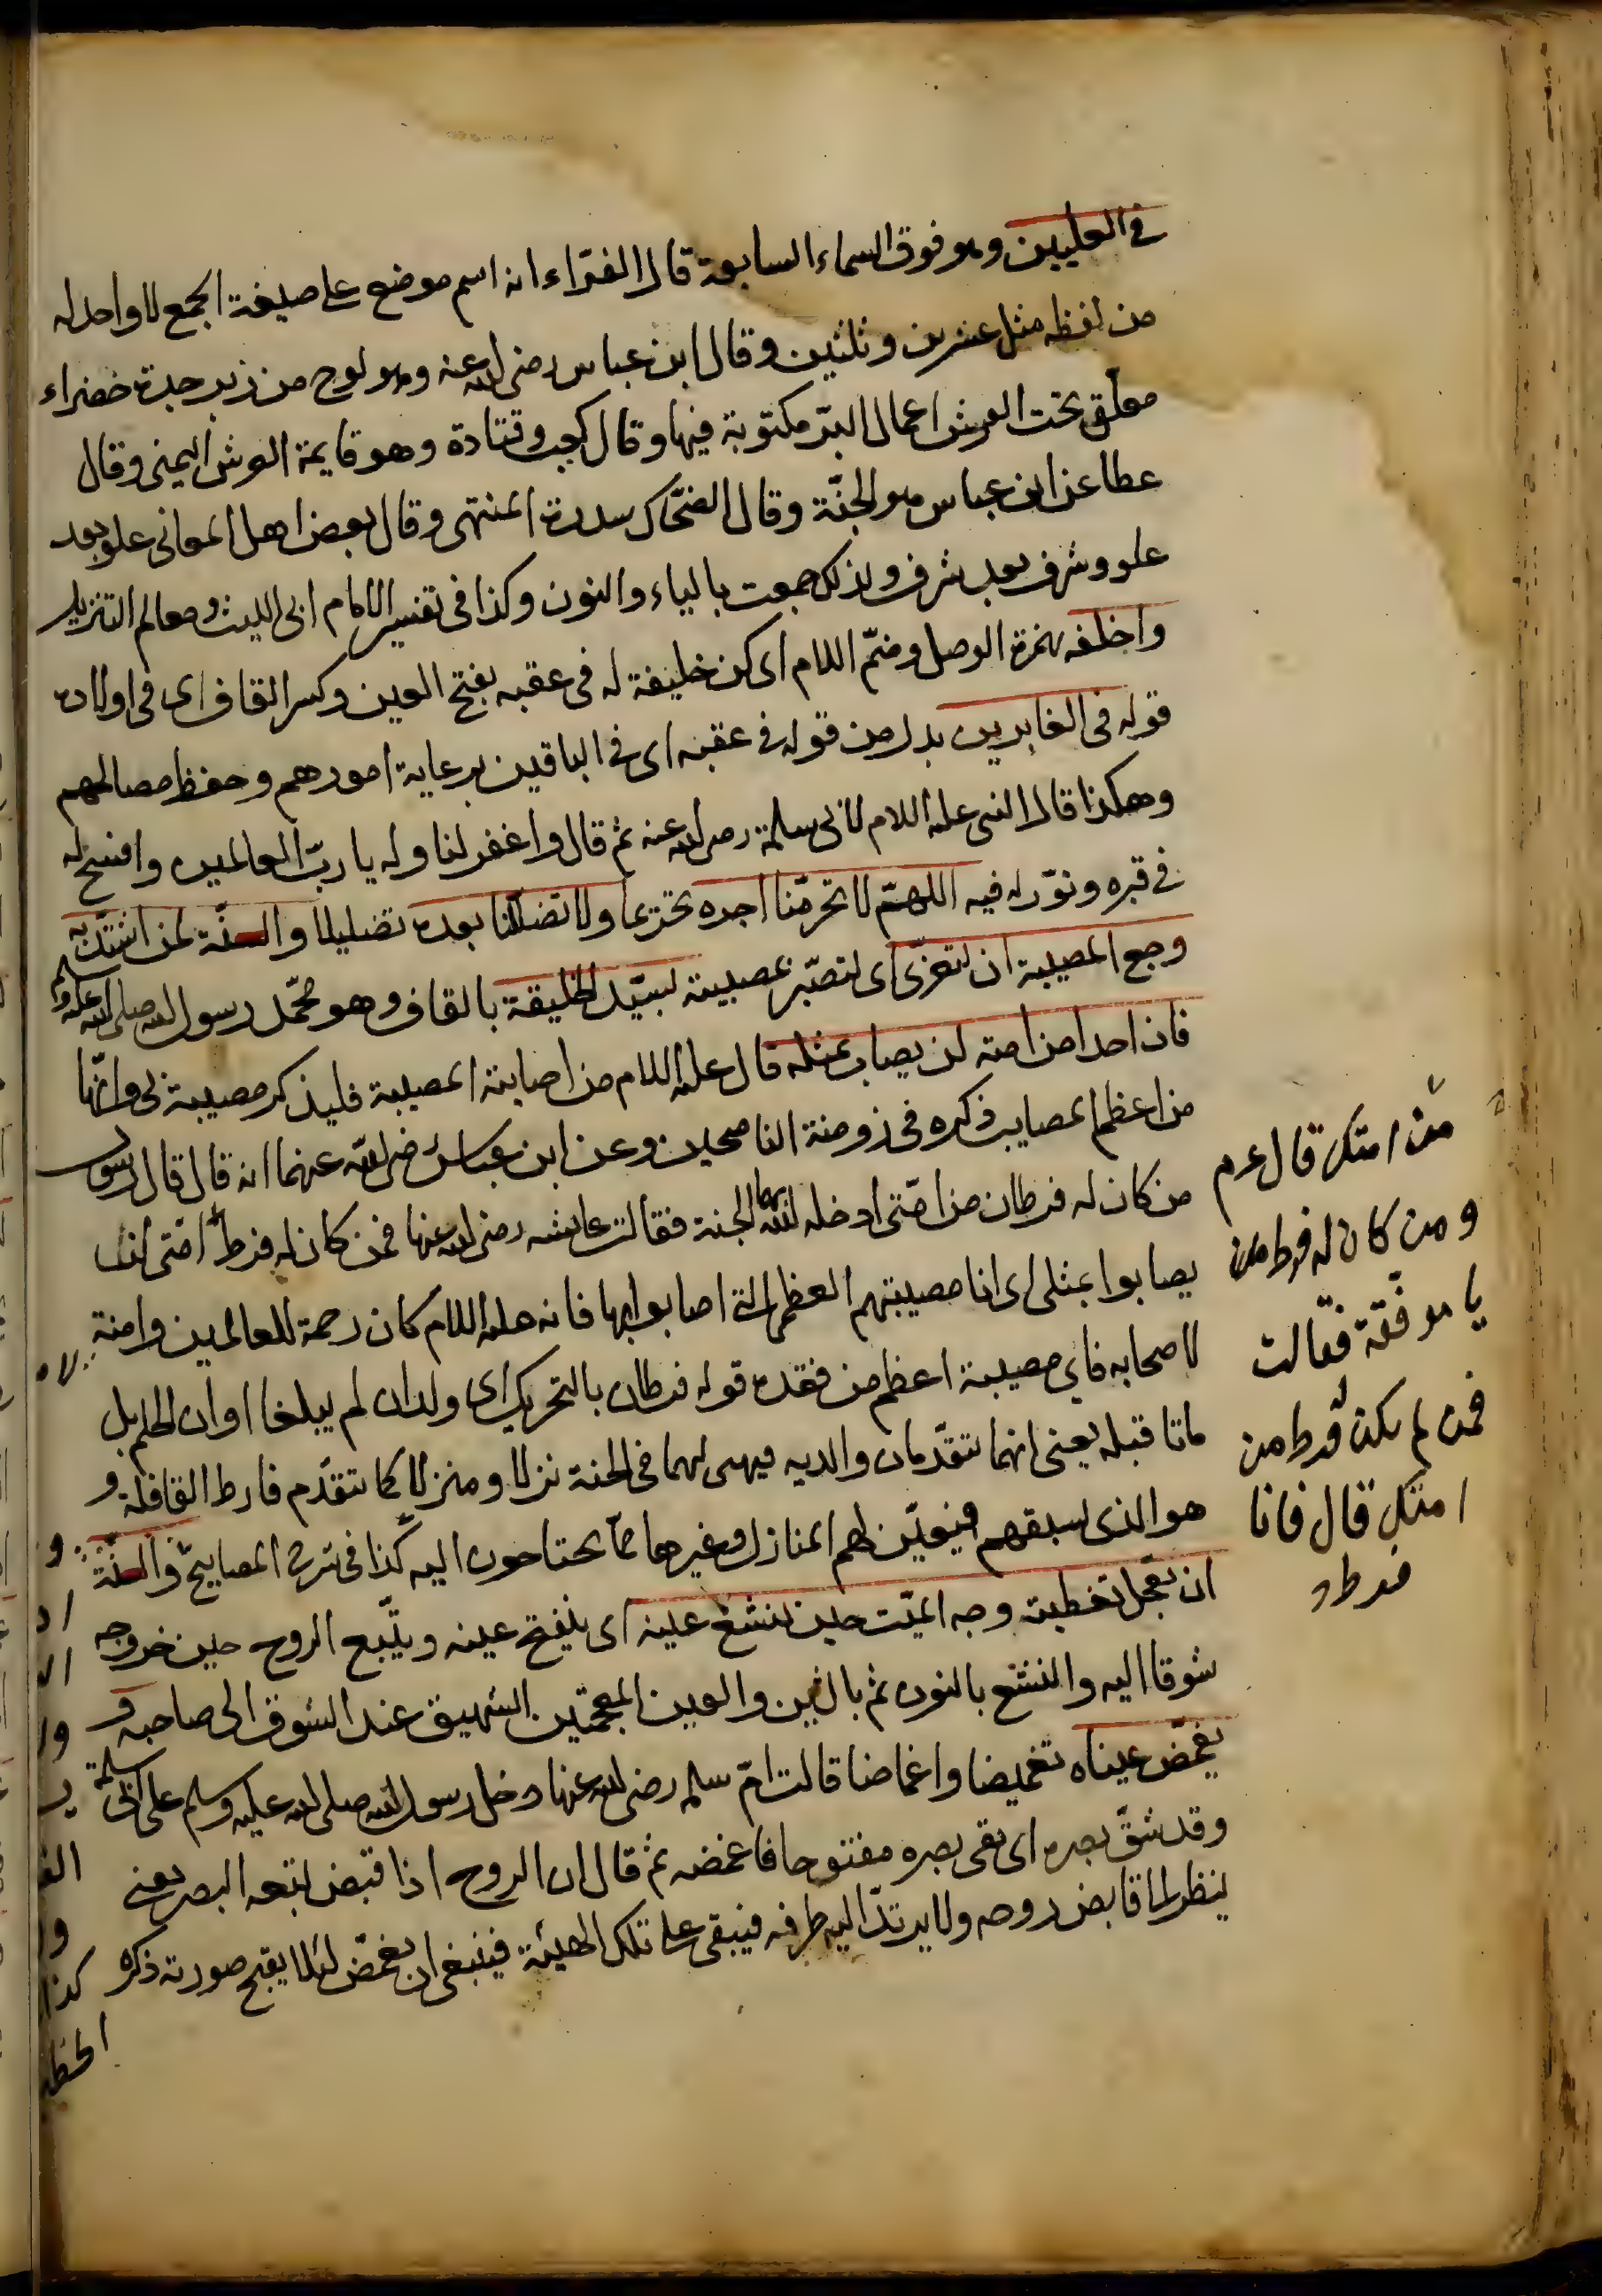 في العليين وهو فوق السماء السابعة قال الفرّاء انه اسم موضع على صيغة الجمع لا واحد له
من لفظه مثل عشرين وثلثين وقال ابن عباس رضى الله عنه وهو لوح من زبرجدة خضراء
معلّق تحت العرش اعمال البرّ مكتوبة فيها وقال كعب وقتادة وهو قايمة العرش اليمنى وقال
عطا عن ابن عباس هو الجنّة وقال الضحّاك سدرة المنتهى وقال بعض اهل المعانى علو بعد
علو وشرف بعد شرف ولذلك جمعت بالياء والنون وكذا فى تفسير الامام ابى الليث ومعالم التنزيل
واخلفه بهمزة الوصل وضمّ اللام اى كن خليفة له فى عقبه بفتح العين وكسر القاف اى فى اولاده
قوله فى الغابرين بدل من قوله فى عقبه اى فى الباقين برعاية امورهم وحفظ مصالحهم
وهكذا قال النبى عليه اللام لابى سلمة رضى الله عنه ثم قال واغفر لنا وله يا ربّ العالمين وافسح له
فى قبره ونوّر له فيه اللهمّ لا تحرمّنا اجره تحريما ولا تضلّنا بعده تضليلا والسنّة لمن اشتدّ به
وجع المصيبة ان يتعزّى اى يتصبّر بمصيبته بسيّد الخليقة بالقاف وهو محمّد رسول الله صلى الله عليه وسلم
فان احدا من امته لن يصاب بمثله قال عليه اللام من اصابته المصيبة فليذكر مصيبة بى وانّها
من اعظم المصايب ذكره فى زومنة الناصحين وعن ابن عباس رضى الله عنهما انه قال قال رسول
من كان له فرطان من امّتى ادخله الله بهما الجنة فقالت عايشه رضى الله عنها فمن كان له فرط امّتى لن
يصابوا بمثلى اى انا مصيبتهم العظمى التى اصابوا بها فانه عليه اللام كان رحمة للعالمين وامنة
لاصحابه فاي مصيبة اعظم من فقده قوله فرطان بالتحريك اى ولدان لم يبلغا اوان الحلم بل
ماتا قبله يعنى انهما يتقدّمان والديه فيهيى لهما فى الجنة نزلا ومنزلا كما يتقدّم فارط القافلة و
هو الذى يسبقهم فيعيّن لهم المنازل وغيرها ممّا يحتاجون اليه كذا فى شرح المصابيح والسنّة
ان يعجّل تغطية وجه الميّت حين ينشغ عينه اى ينفتح عينه ويتّبع الروح حين خروجه
شوقا اليه والنشغ بالنون ثم بالشين والغين المعجمتين الشهيق عند الشوق الى صاحبه و
يغمّض عيناه تغميضا واغماضا قالت امّ سلمه رضى الله عنها دخل رسول الله صلى الله عليه وسلم على ابى سلمة
وقد شقّ بصره اى بقى بصره مفتوحا فاغمضه ثم قال ان الروح اذا قبض اتبعه البصر يعنى
ينظر الى قابض روحه ولا يرتدّ اليه طرفه فيبقى على تلك الهيئة فينبغى ان يغمّض لئلا يقبح صورته ذكره
من امتك قال عم
ومن كان له فرط من
يا موفّقة فقالت
فمن لم يكن له فرط من
امتك قال فانا
فرط